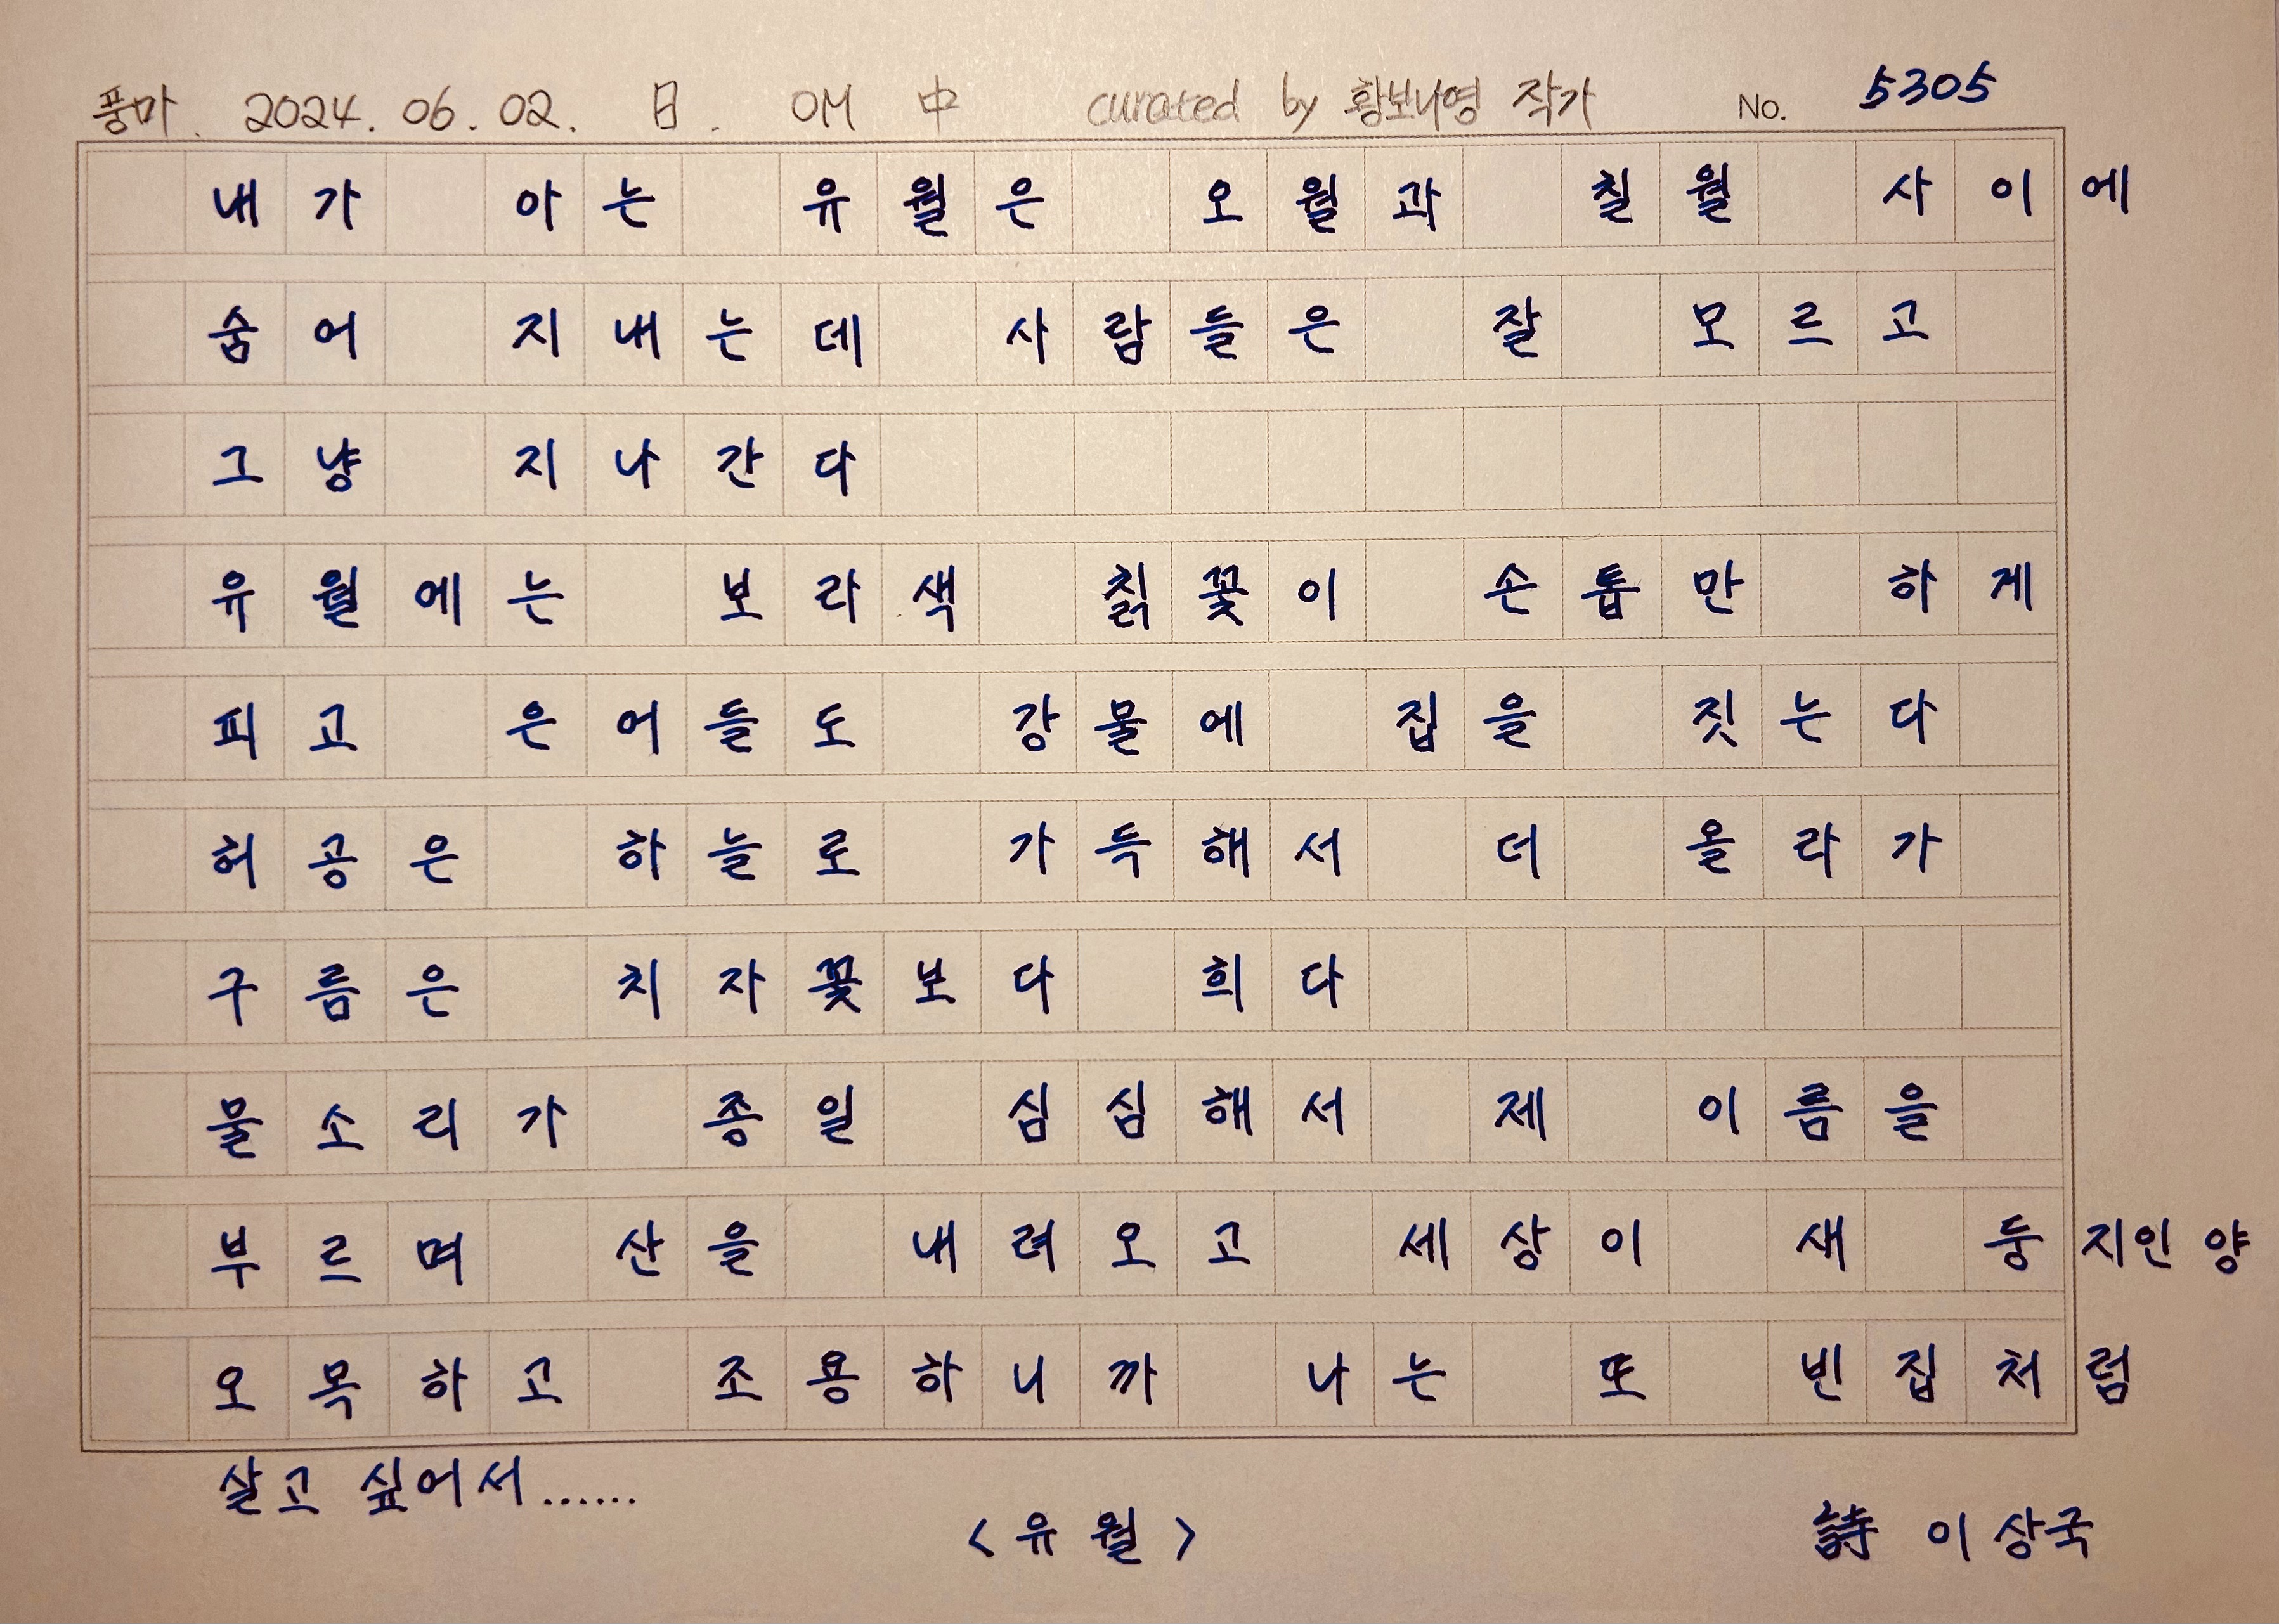 풍마. 2024. 06. 02. 日. OM 中 curated by 황보나영 작가 No. 5305
내가 아는 유월은 오월과 칠월 사이에
숨어 지내는데 사람들은 잘 모르고
그냥 지나간다
유월에는 보라색 칡꽃이 손톱만 하게
피고 은어들도 강물에 집을 짓는다
허공은 하늘로 가득해서 더 올라가
구름은 치자꽃보다 희다
물소리가 종일 심심해서 제 이름을
부르며 산을 내려오고 세상이 새 둥지인 양
오목하고 조용하니까 나는 또 빈집처럼
살고 싶어서......
<유월>
詩 이상국